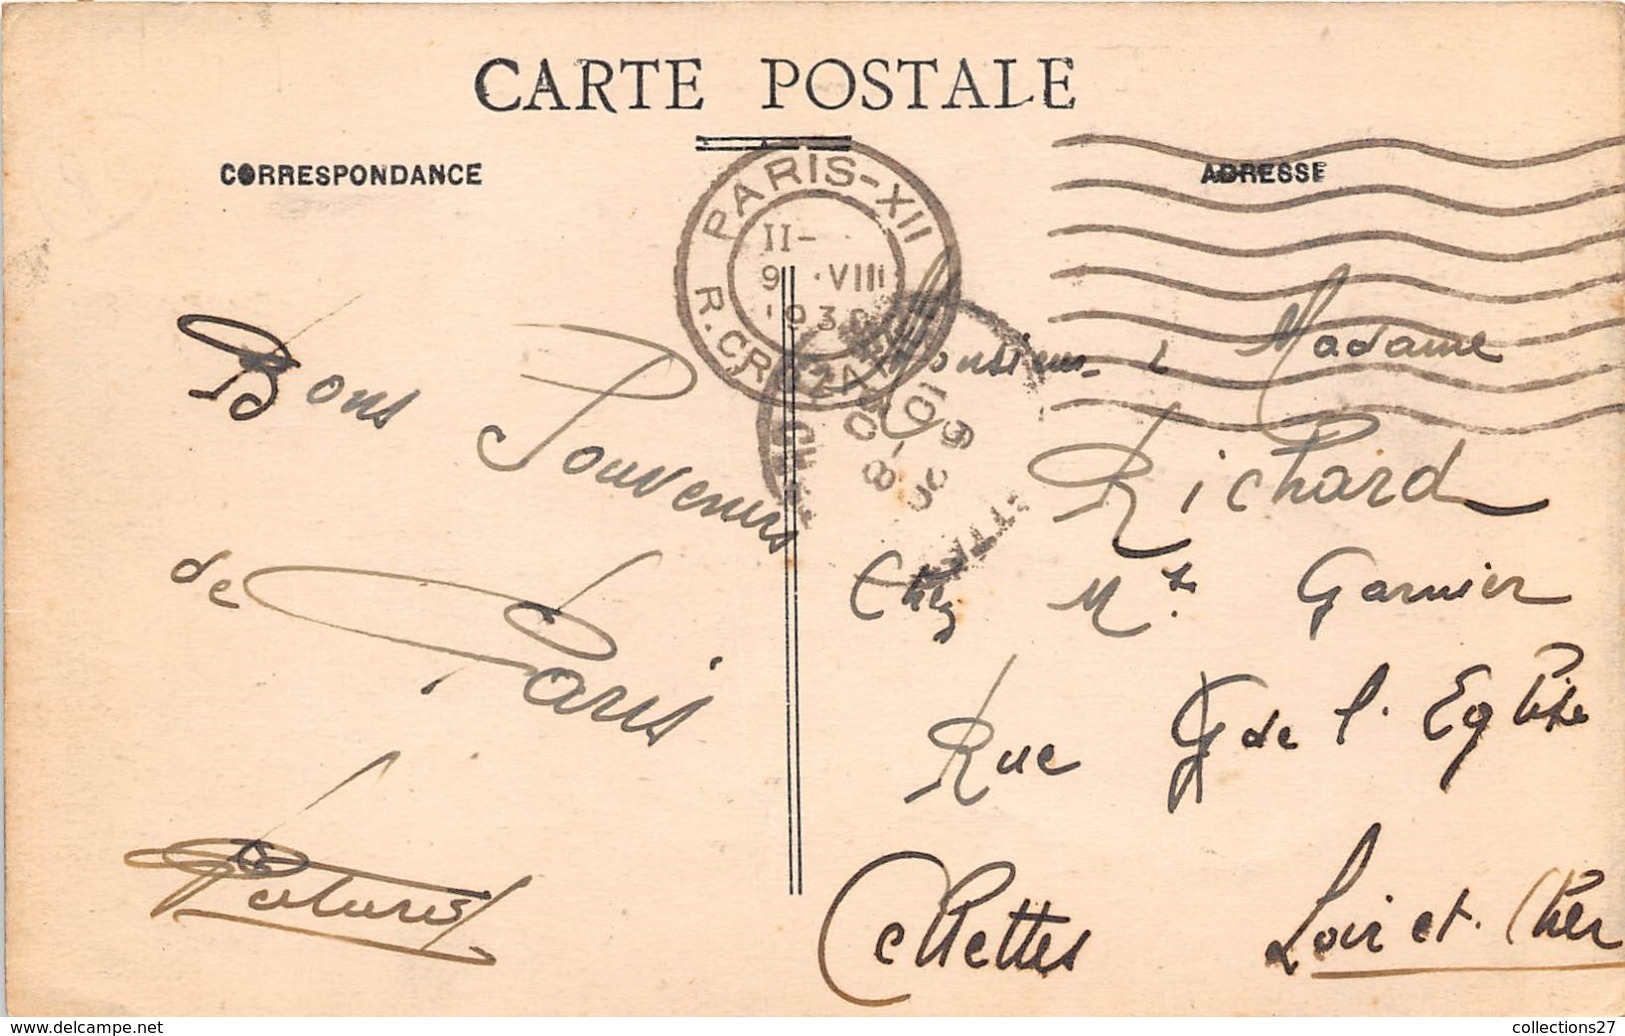 CARTE POSTALE
CORRESPONDANCE
ADRESSE
PARIS-XII
II-
9 VIII
193
R. CROZATIER
Bons Souvenirs
de Paris
Monsieur & Madame
Richard
Chez Mr. Garnier
Rue de l'Eglise
Cellettes Loir et Cher
10 9
8-30
www.delcampe.net
collections27